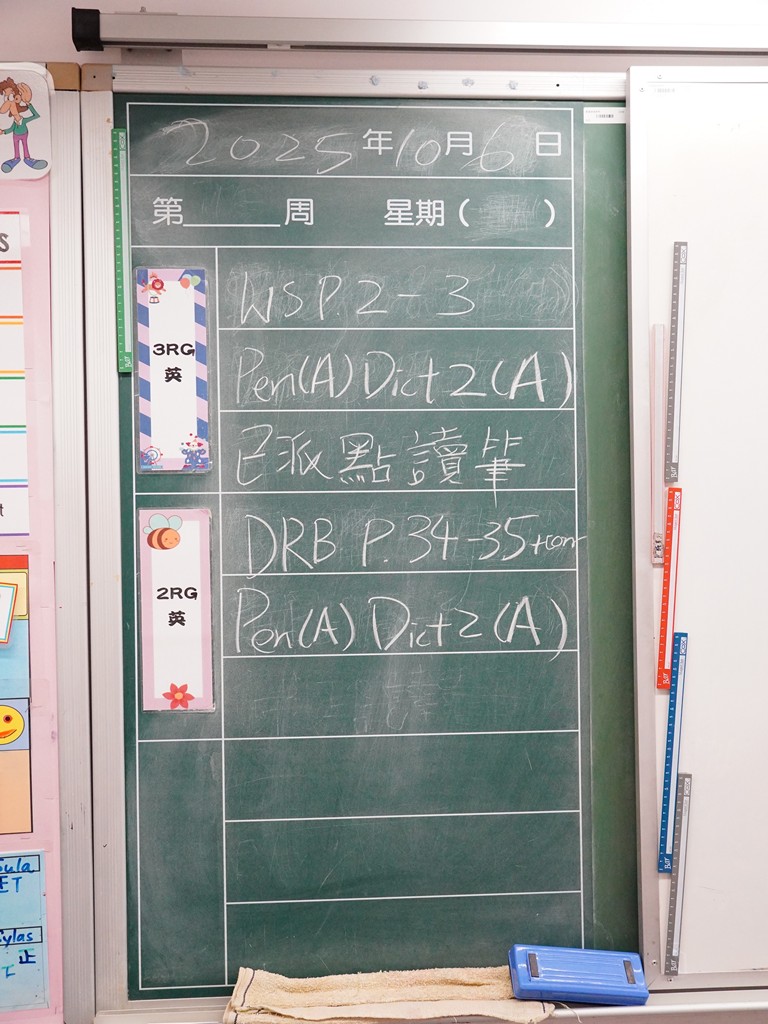 2025年10月6日
第______周 星期( )
3RG
英
WS P.2-3
Pen(A) Dict 2(A)
已派點讀筆
2RG
英
DRB P.34-35+corr
Pen(A) Dict 2(A)
s
t
ula
正T
Sylas
正